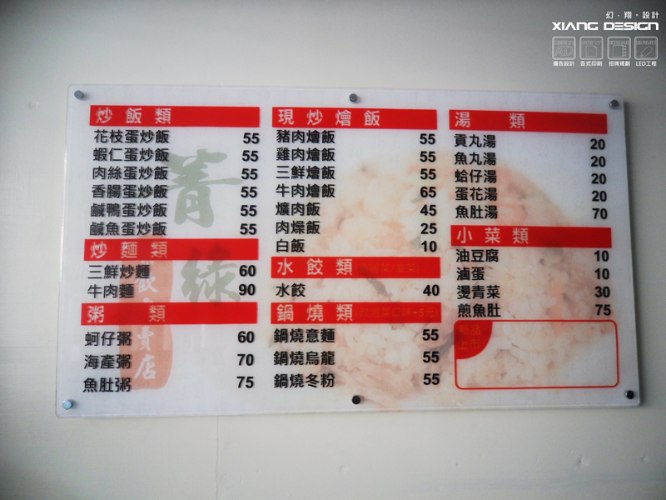 幻.翔.設計
XIANG DESIGN
廣告設計 各式印刷 招牌規劃 LED工程
炒飯類
花枝蛋炒飯 55
蝦仁蛋炒飯 55
肉絲蛋炒飯 55
香腸蛋炒飯 55
鹹鴨蛋炒飯 55
鹹魚蛋炒飯 55
炒麵類
三鮮炒麵 60
牛肉麵 90
粥類
蚵仔粥 60
海產粥 70
魚肚粥 75
現炒燴飯
豬肉燴飯 55
雞肉燴飯 55
三鮮燴飯 55
牛肉燴飯 65
爌肉飯 45
肉燥飯 25
白飯 10
水餃類
水餃 40
鍋燒類
鍋燒意麵 55
鍋燒烏龍 55
鍋燒冬粉 55
湯類
貢丸湯 20
魚丸湯 20
蛤仔湯 20
蛋花湯 20
魚肚湯 70
小菜類
油豆腐 10
滷蛋 10
燙青菜 30
煎魚肚 75
新品
上市